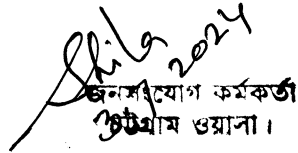 Shila
2024
জনসংযোগ কর্মকর্তা
চট্টগ্রাম ওয়াসা।